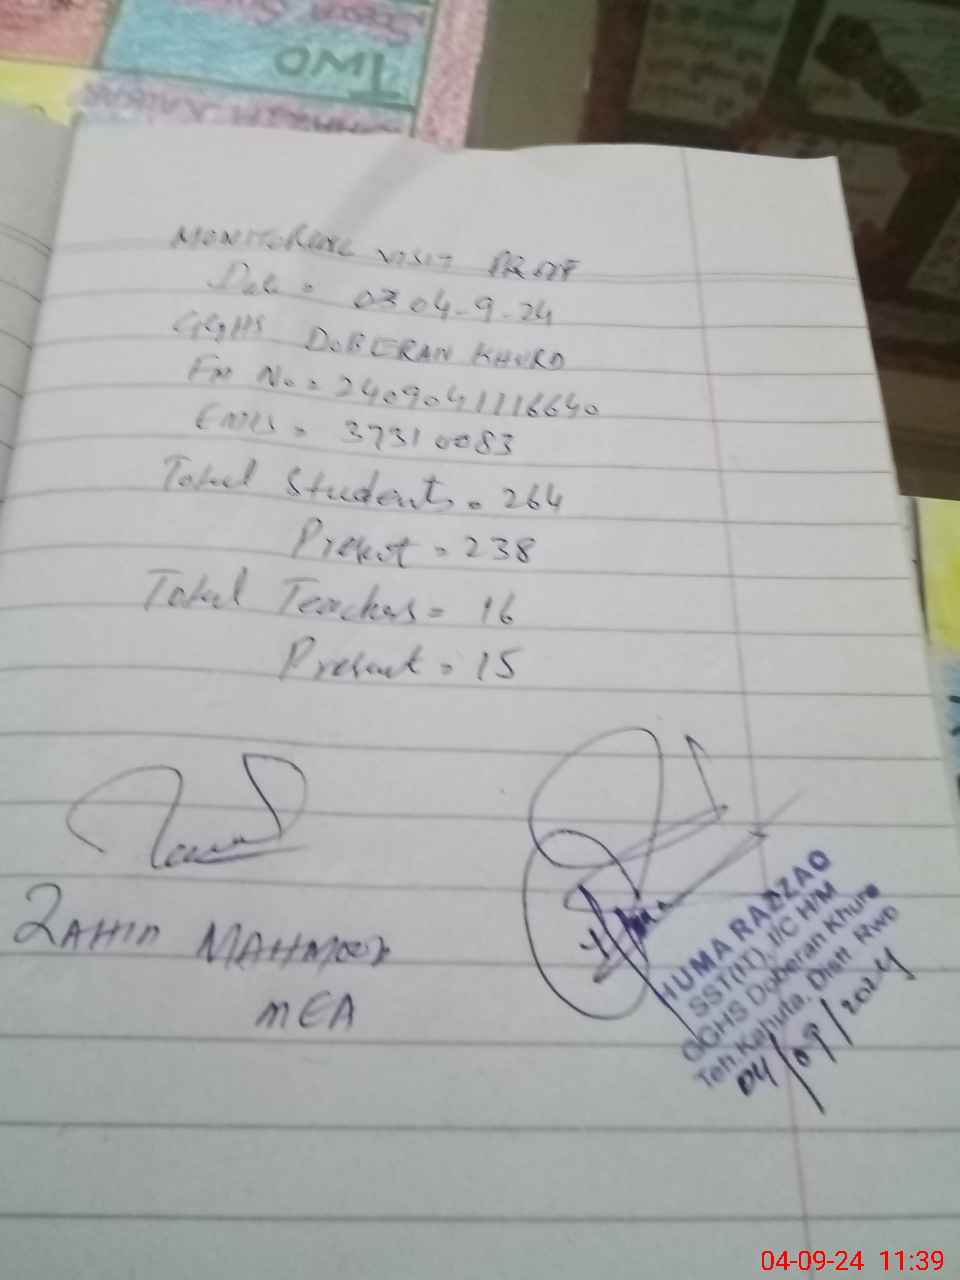 TWO
MONITORING VISIT PROOF
Date = 03 04-9-24
GGHS DOBERAN KHURD
Fm No = 2409041116640
EMIS = 37310083
Total Students = 264
Present = 238
Total Teachers = 16
Present = 15
ZAHID MAHMOOD
MEA
HUMA RAZZAQ
SST(IT), I/C H/M
GGHS Doberan Khurd
Teh.Kahuta, Distt. RWP
04/09/2024
04-09-24 11:39